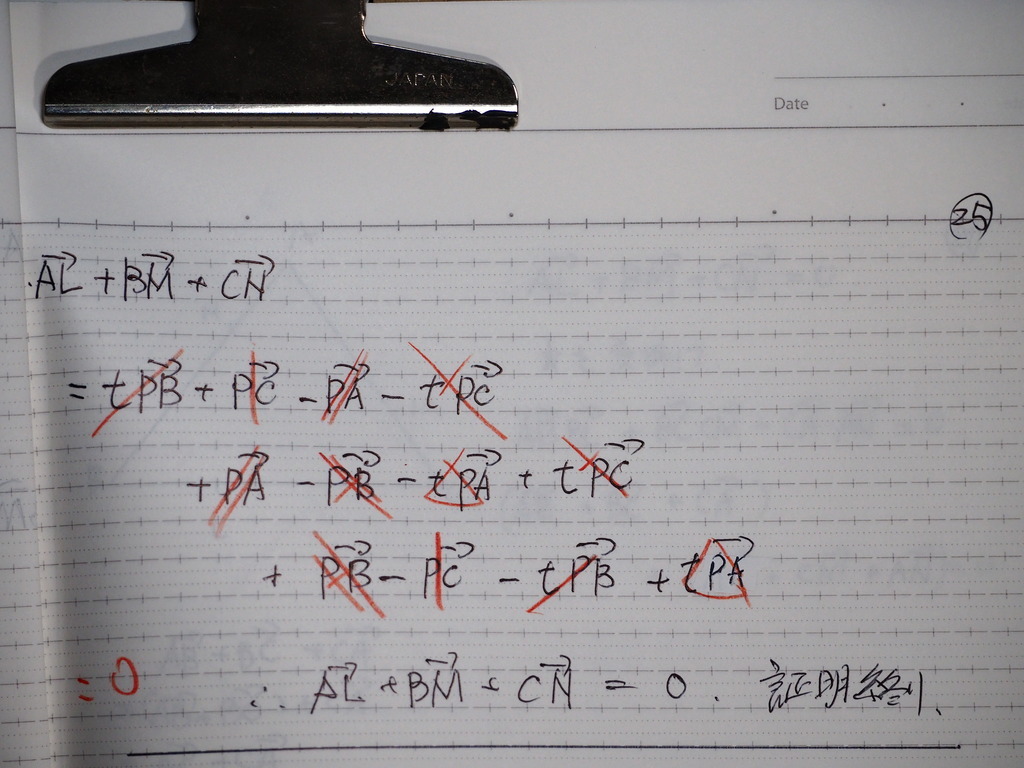 JAPAN
Date
㉕
$\overrightarrow{AL} + \overrightarrow{BM} + \overrightarrow{CN}$
$= t\overrightarrow{PB} + \overrightarrow{PC} - \overrightarrow{PA} - t\overrightarrow{PC}$
$+ \overrightarrow{PA} - \overrightarrow{PB} - t\overrightarrow{PA} + t\overrightarrow{PC}$
$+ \overrightarrow{PB} - \overrightarrow{PC} - t\overrightarrow{PB} + t\overrightarrow{PA}$
$= 0 \quad \therefore \overrightarrow{AL} + \overrightarrow{BM} + \overrightarrow{CN} = 0.$ 証明終り、